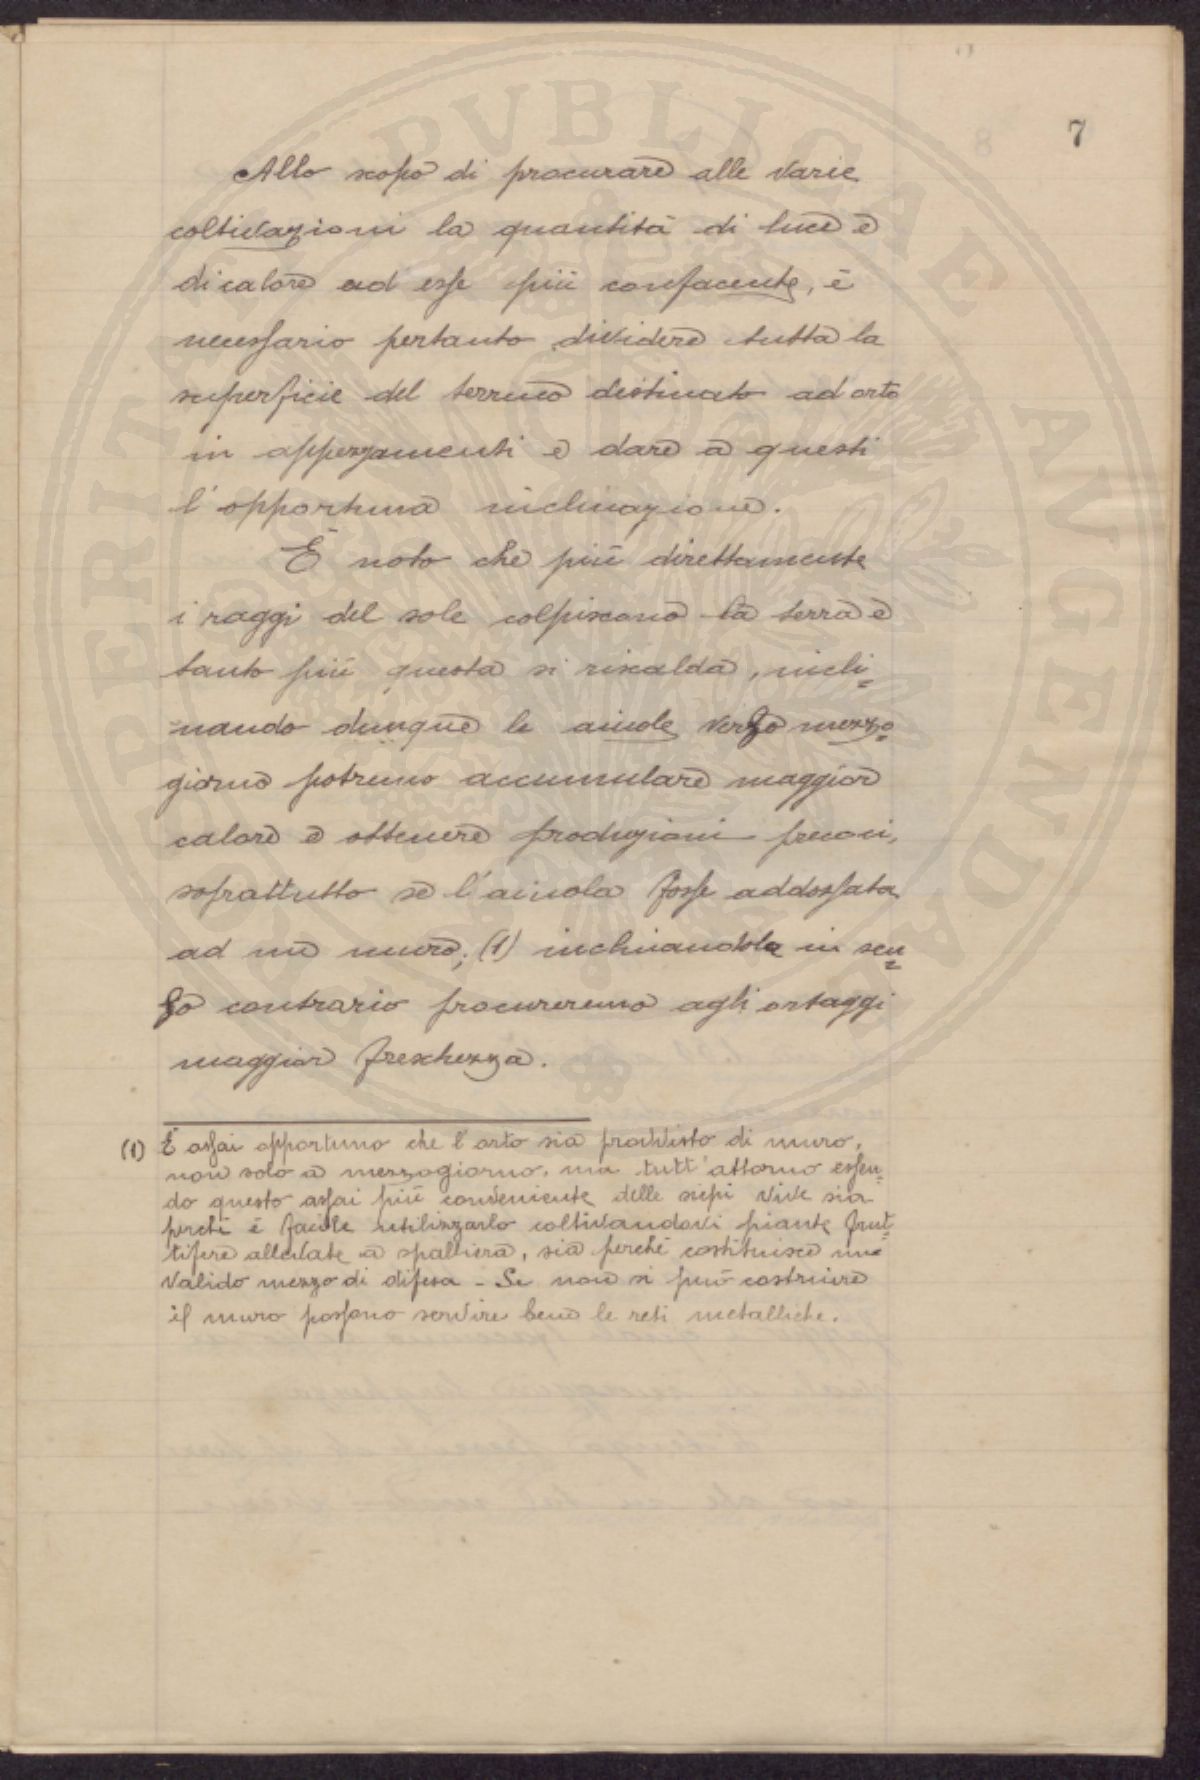 7
Allo scopo di procurare alle varie
coltivazioni la quantità di luce e
di calore ad esse più confacente, è
necessario pertanto dividere tutta la
superficie del terreno destinato ad orto
in appezzamenti e dare a questi
l'opportuna inclinazione.
È noto che più direttamente
i raggi del sole colpiscono la terra e
tanto più questa si riscalda, incli=
nando dunque le aiuole verso mezzo=
giorno potremo accumulare maggior
calore e ottenere produzioni precoci,
soprattutto se l'aiuola fosse addossata
ad un muro; (1) inclinandola in sen=
so contrario procureremo agli ortaggi
maggior freschezza.
(1) È assai opportuno che l'orto sia provvisto di muro,
non solo a mezzogiorno, ma tutt'attorno essen=
do questo assai più conveniente delle siepi vive sia
perché è facile utilizzarlo coltivandovi piante frut=
tifere allevate a spalliera, sia perché costituisce un
valido mezzo di difesa - Se non si può costruire
il muro possono servire bene le reti metalliche.
PVBLICAE AVGENDAE